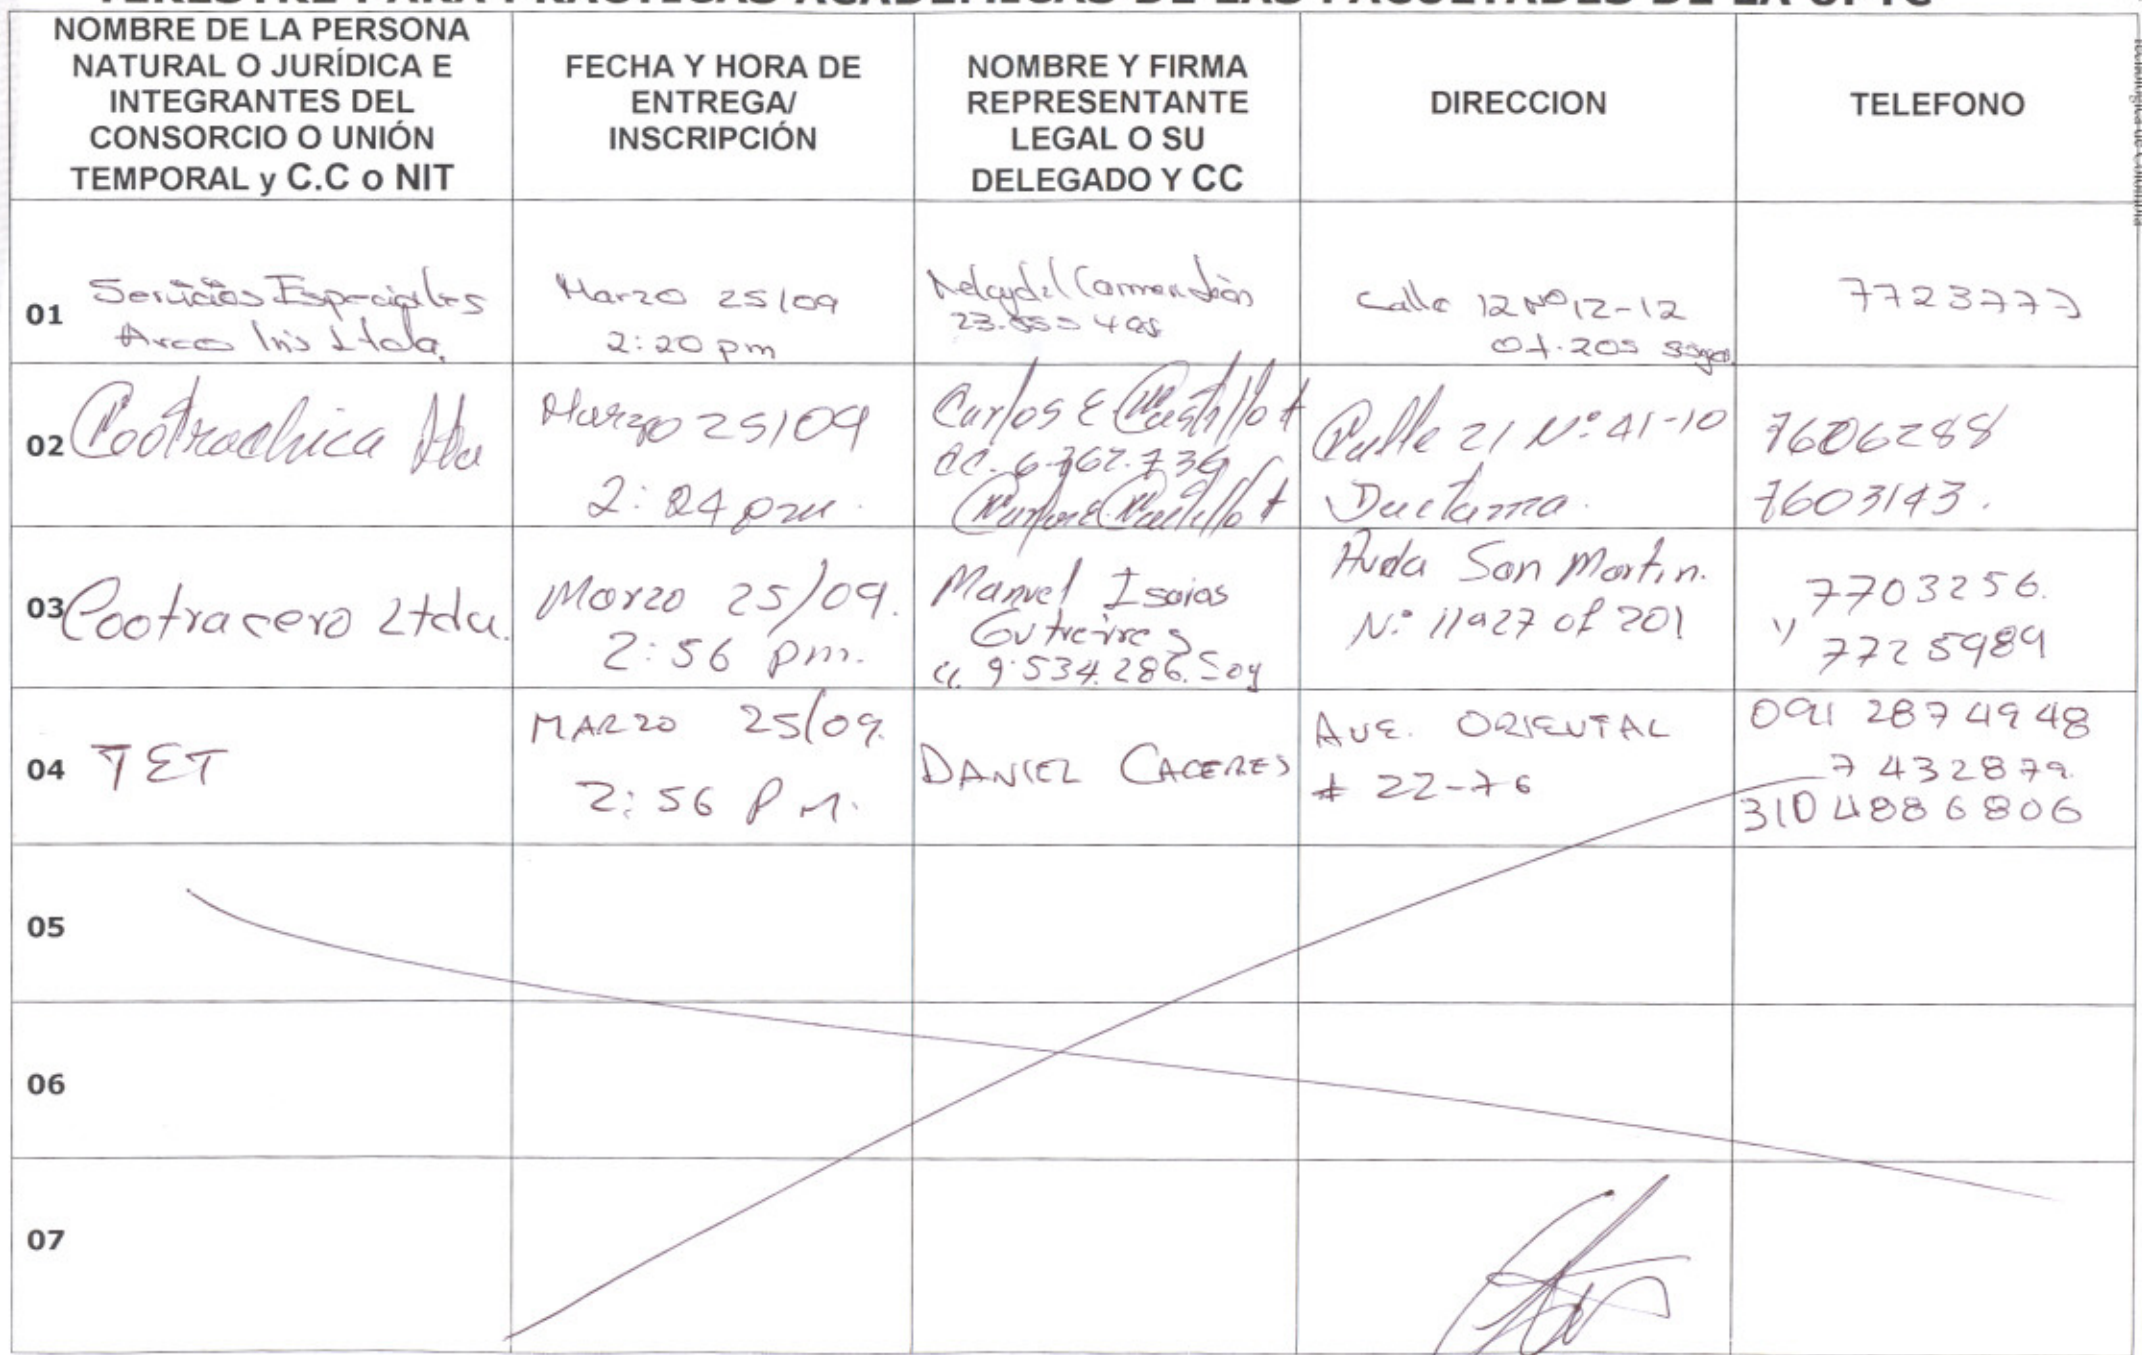 TERESTRE PARA PRÁCTICAS ACADÉMICAS DE LAS FACULTADES DE LA UPTC
NOMBRE DE LA PERSONA
NATURAL O JURÍDICA E
INTEGRANTES DEL
CONSORCIO O UNIÓN
TEMPORAL y C.C o NIT
FECHA Y HORA DE
ENTREGA/
INSCRIPCIÓN
NOMBRE Y FIRMA
REPRESENTANTE
LEGAL O SU
DELEGADO Y CC
DIRECCION
TELEFONO
01
Servicios Especiales
Arco Iris Ltda.
Marzo 25/09
2:20 pm
Calle 12 Nº 12-12
Of. 205
7723773
02
Cootrachica Ltda
Marzo 25/09
2:24 pm.
Carlos E Castillo
CC. 6.762.736
Calle 21 Nº 41-10
Duitama.
7606288
7603143.
03
Cootracero Ltda.
Marzo 25/09.
2:56 pm.
Manuel Isaias
Gutreirres
cc. 9.534.286. Sog
Avda San Martin.
Nº 11a27 of 201
7703256.
y
7725989
04
TET
MARZO 25/09.
2:56 P.M.
DANIEL CACERES
AVE. ORIENTAL
# 22-76
091 2874948
7432879.
310 4886806
05
06
07